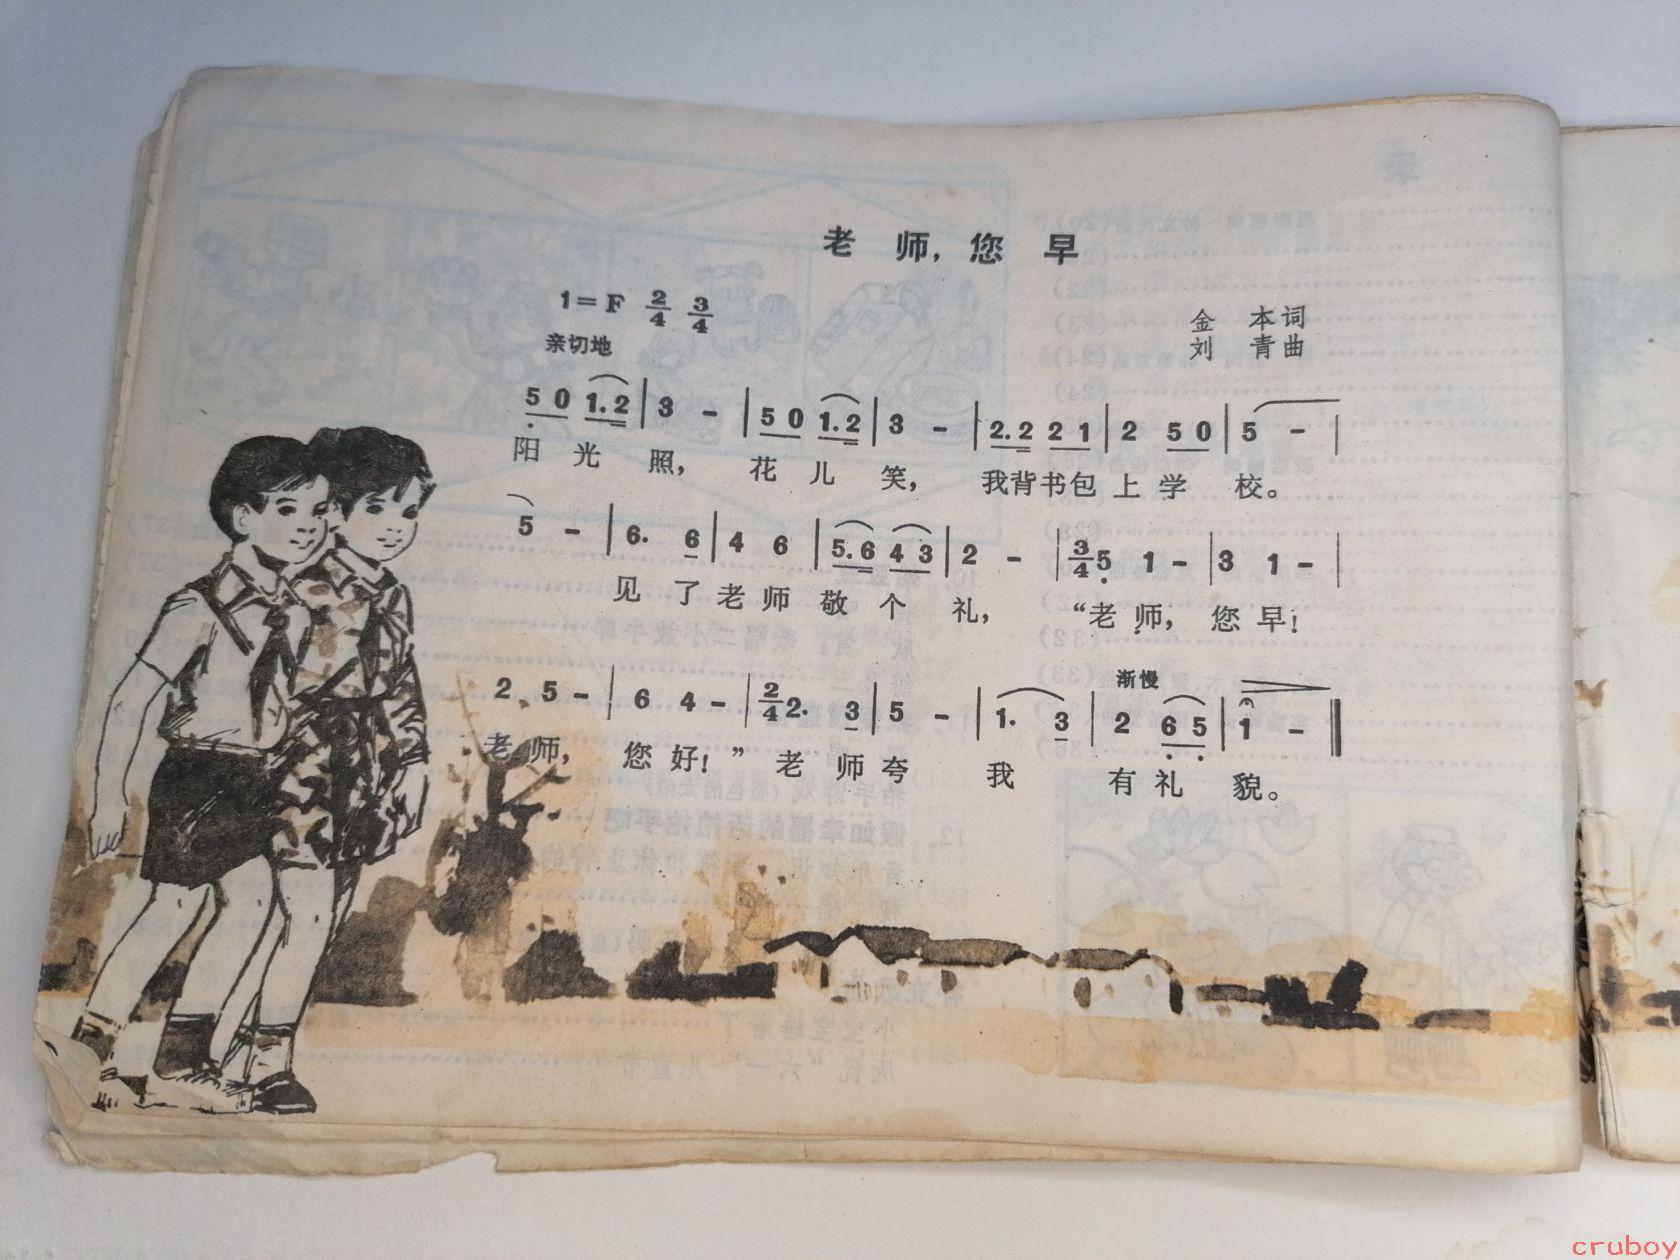 老 师，您 早
1=F 2/4 3/4
金 本词
亲切地
刘 青曲
5 0 1.2 | 3 - | 5 0 1.2 | 3 - | 2.2 2 1 | 2 5 0 | 5 - |
阳 光 照， 花 儿 笑， 我背书包 上 学 校。
5 - | 6. 6 | 4 6 | 5.6 4 3 | 2 - | 3/4 5 1 - | 3 1 - |
见 了 老 师 敬 个 礼， “老 师， 您 早！
渐慢
2 5 - | 6 4 - | 2/4 2. 3 | 5 - | 1. 3 | 2 6 5 | 1 - ‖
老 师， 您 好！” 老 师 夸 我 有 礼 貌。
cruboy